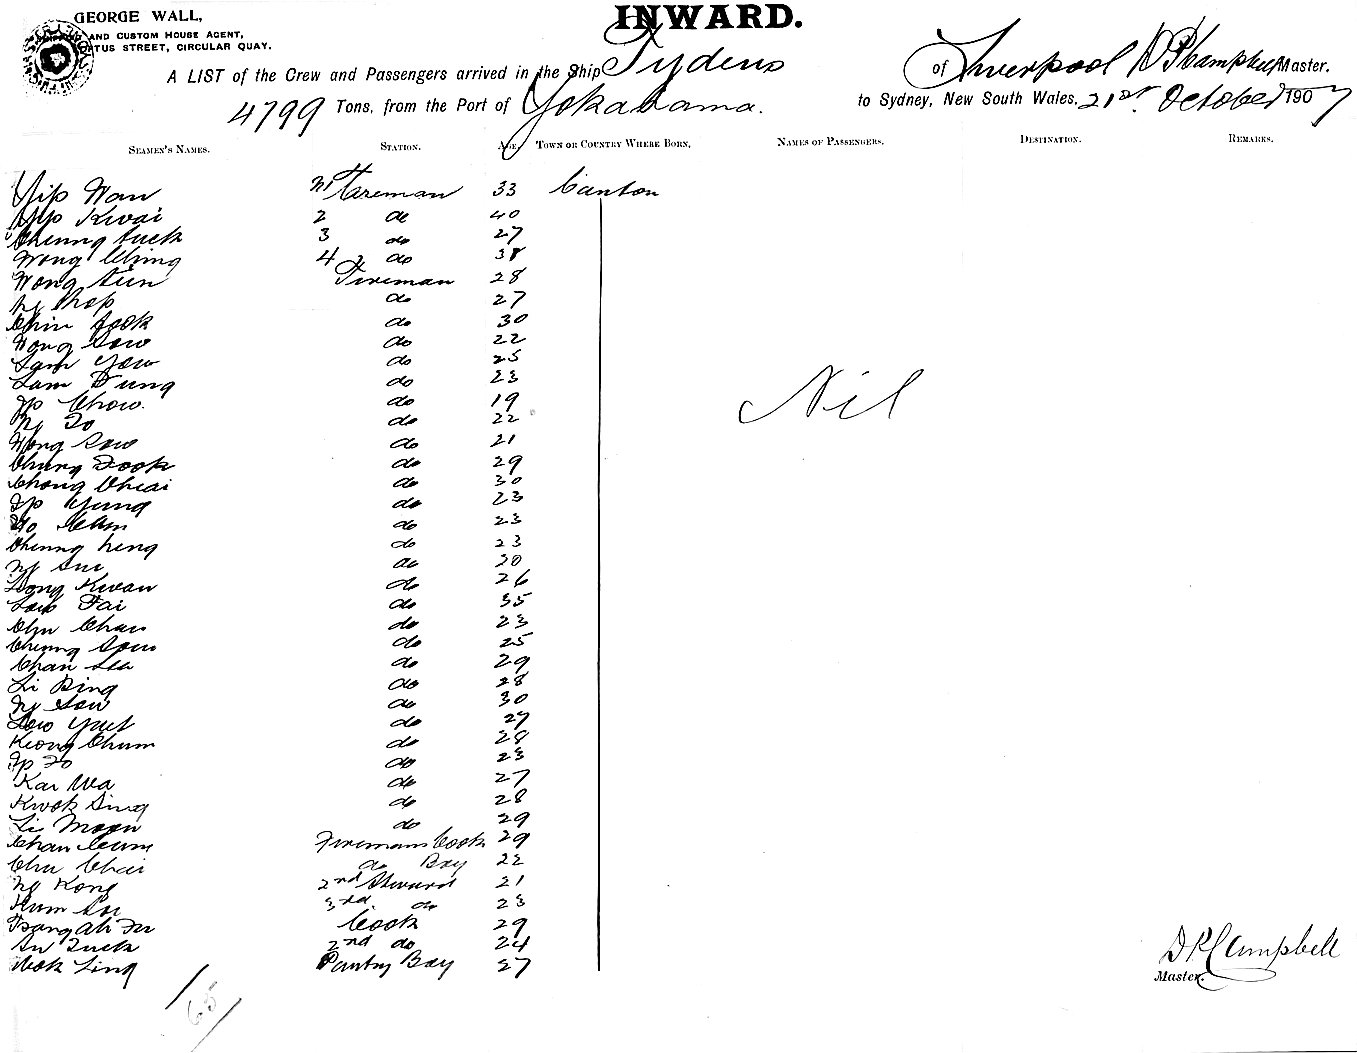 GEORGE WALL,
AND CUSTOM HOUSE AGENT,
STREET, CIRCULAR QUAY.
INWARD.
A LIST of the Crew and Passengers arrived in the Ship Tydeus of Liverpool D P Campbell Master.
4799 Tons, from the Port of Yokahama. to Sydney, New South Wales, 21st October 1907
SEAMEN'S NAMES. STATION. AGE. TOWN OR COUNTRY WHERE BORN, NAMES OF PASSENGERS, DESTINATION. REMARKS.
Yip Wan No 1 Fireman 33 Canton
Yip Kwai 2 do 40
Cheung Tuck 3 do 27
Wong Ching 4 do 38
Wong Sun Fireman 28
Ng Shop do 27
Chin Sook do 30
Wong Sow do 22
Lam Yow do 25
Lam Fung do 23
Ip Chow. do 19
Ng To do 22
Wong Sow do 21
Chung Fook do 29
Chong Cheai do 30
Ip Yung do 23
Ho do 23
Cheung Leng do 23
Ng Sui do 30
Kwan do 26
Low Tai do 35
Chu Chau do 23
Cheung Sow do 25
Chan do 29
Li Bing do 28
Ng Sow do 30
Low Yuet do 27
Keong Chum do 28
Ip To do 23
Kai Wa do 27
Kwok Sing do 28
Li Moon do 29
Chan Firemans Cook 29
Chu Chai do Boy 22
Ng Kong 2nd Steward 21
Kum Sui 3rd. do 23
Tsang Ah Fu Cook 29
Su Tuck 2nd do 24
Mok Ling Pantry Boy 27
Nil
D P Campbell
Master.
65